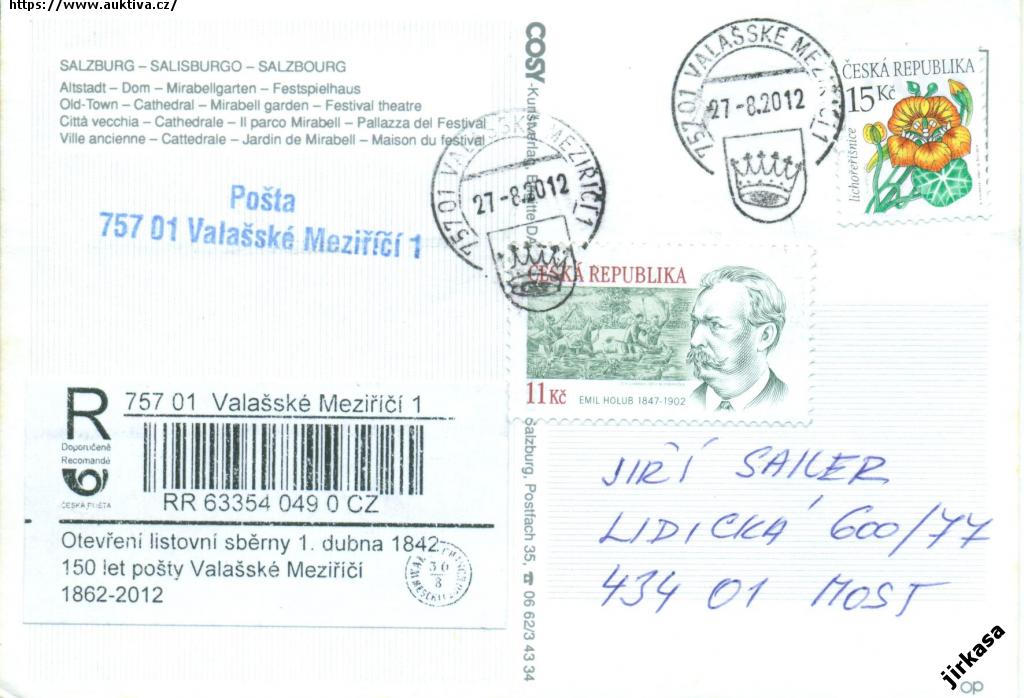 https://www.auktiva.cz/
SALZBURG – SALISBURGO – SALZBOURG
Altstadt – Dom – Mirabellgarten – Festspielhaus
Old-Town – Cathedral – Mirabell garden – Festival theatre
Città vecchia – Cathedrale – Il parco Mirabell – Pallazza del Festival
Ville ancienne – Cattedrale – Jardin de Mirabell – Maison du festival
Pošta
757 01 Valašské Meziříčí 1
COSY-Kunstverlag,
Salzburg, Postfach 35, ☎ 06 62/3 43 34
757 01 VALAŠSKÉ MEZIŘÍČÍ 1
27-8.2012
757 01 VALAŠSKÉ MEZIŘÍČÍ 1
27-8.2012
ČESKÁ REPUBLIKA
15 Kč
lichořeřišnice
ČESKÁ REPUBLIKA
11 Kč
EMIL HOLUB 1847-1902
R 757 01 Valašské Meziříčí 1
Doporučeně
Recomandé
ČESKÁ POŠTA
RR 63354 049 0 CZ
Otevření listovní sběrny 1. dubna 1842
150 let pošty Valašské Meziříčí
1862-2012
30
8
JIŘÍ SAILER
LIDICKÁ 600/77
434 01 MOST
jirkasa
op